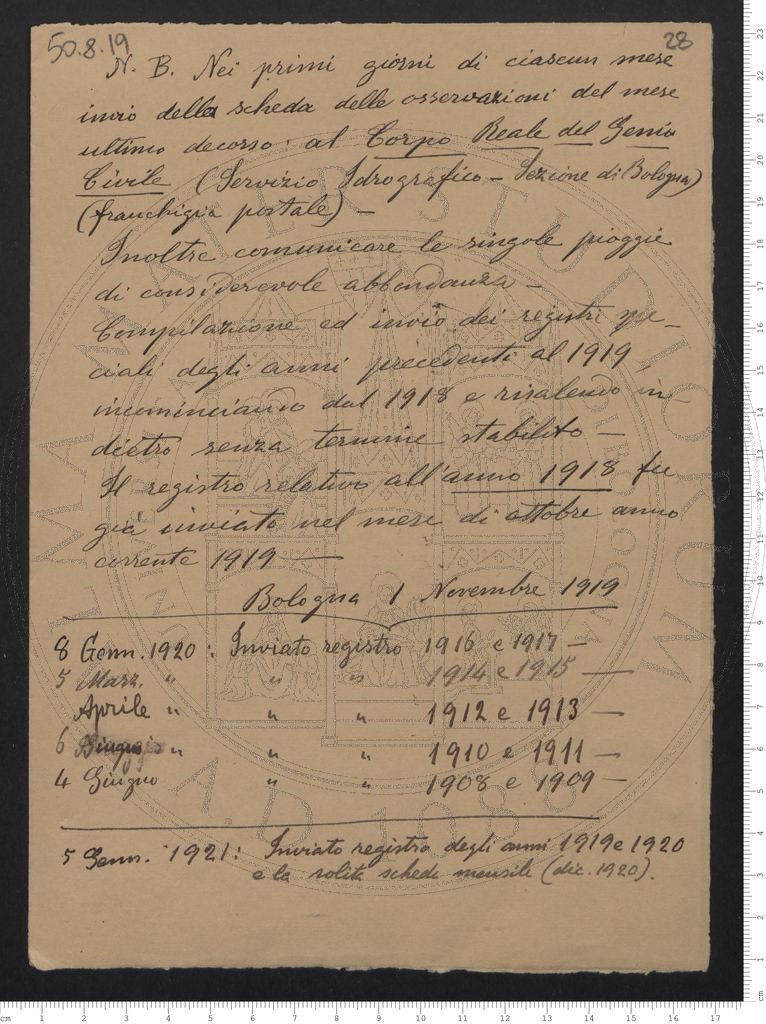 50.8.19
28
N. B. Nei primi giorni di ciascun mese
invio della scheda delle osservazioni del mese
ultimo decorso: al Corpo Reale del Genio
Civile (Servizio Idrografico - Sezione di Bologna)
(franchigia postale) -
Inoltre comunicare le singole pioggie
di considerevole abbondanza -
Compilazione ed invio dei registri spe-
ciali degli anni precedenti al 1919,
incominciando dal 1918 e risalendo in-
dietro senza termine stabilito -
Il registro relativo all'anno 1918 fu
già inviato nel mese di ottobre anno
corrente 1919 -
Bologna 1 Novembre 1919
8 Genn. 1920: Inviato registro 1916 e 1917 -
5 Marz. " " " 1914 e 1915 -
Aprile " " " 1912 e 1913 -
6 " " " 1910 e 1911 -
4 Giugno " " 1908 e 1909 -
5 Genn. 1921: Inviato registro degli anni 1919 e 1920
e la solita scheda mensile (dic. 1920).
ALMA MATER STUDIORUM
A.D. 1088